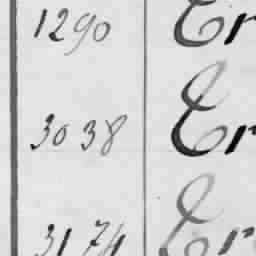 1290 Er
3038 Er
3174 Er